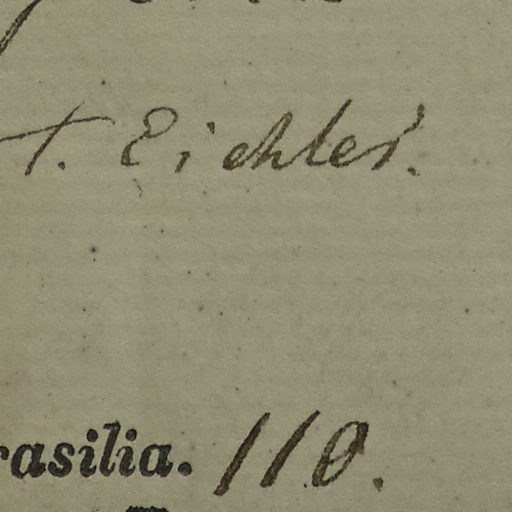 t. Eichler.
rasilia. 110.